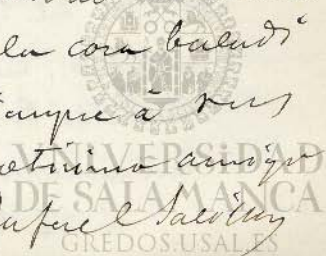 la cosa baladí
siempre á sus
afectísimo amigo
Rafael Salillas
VNiVERSiDAD
DE SALAMANCA
GREDOS.USAL.ES